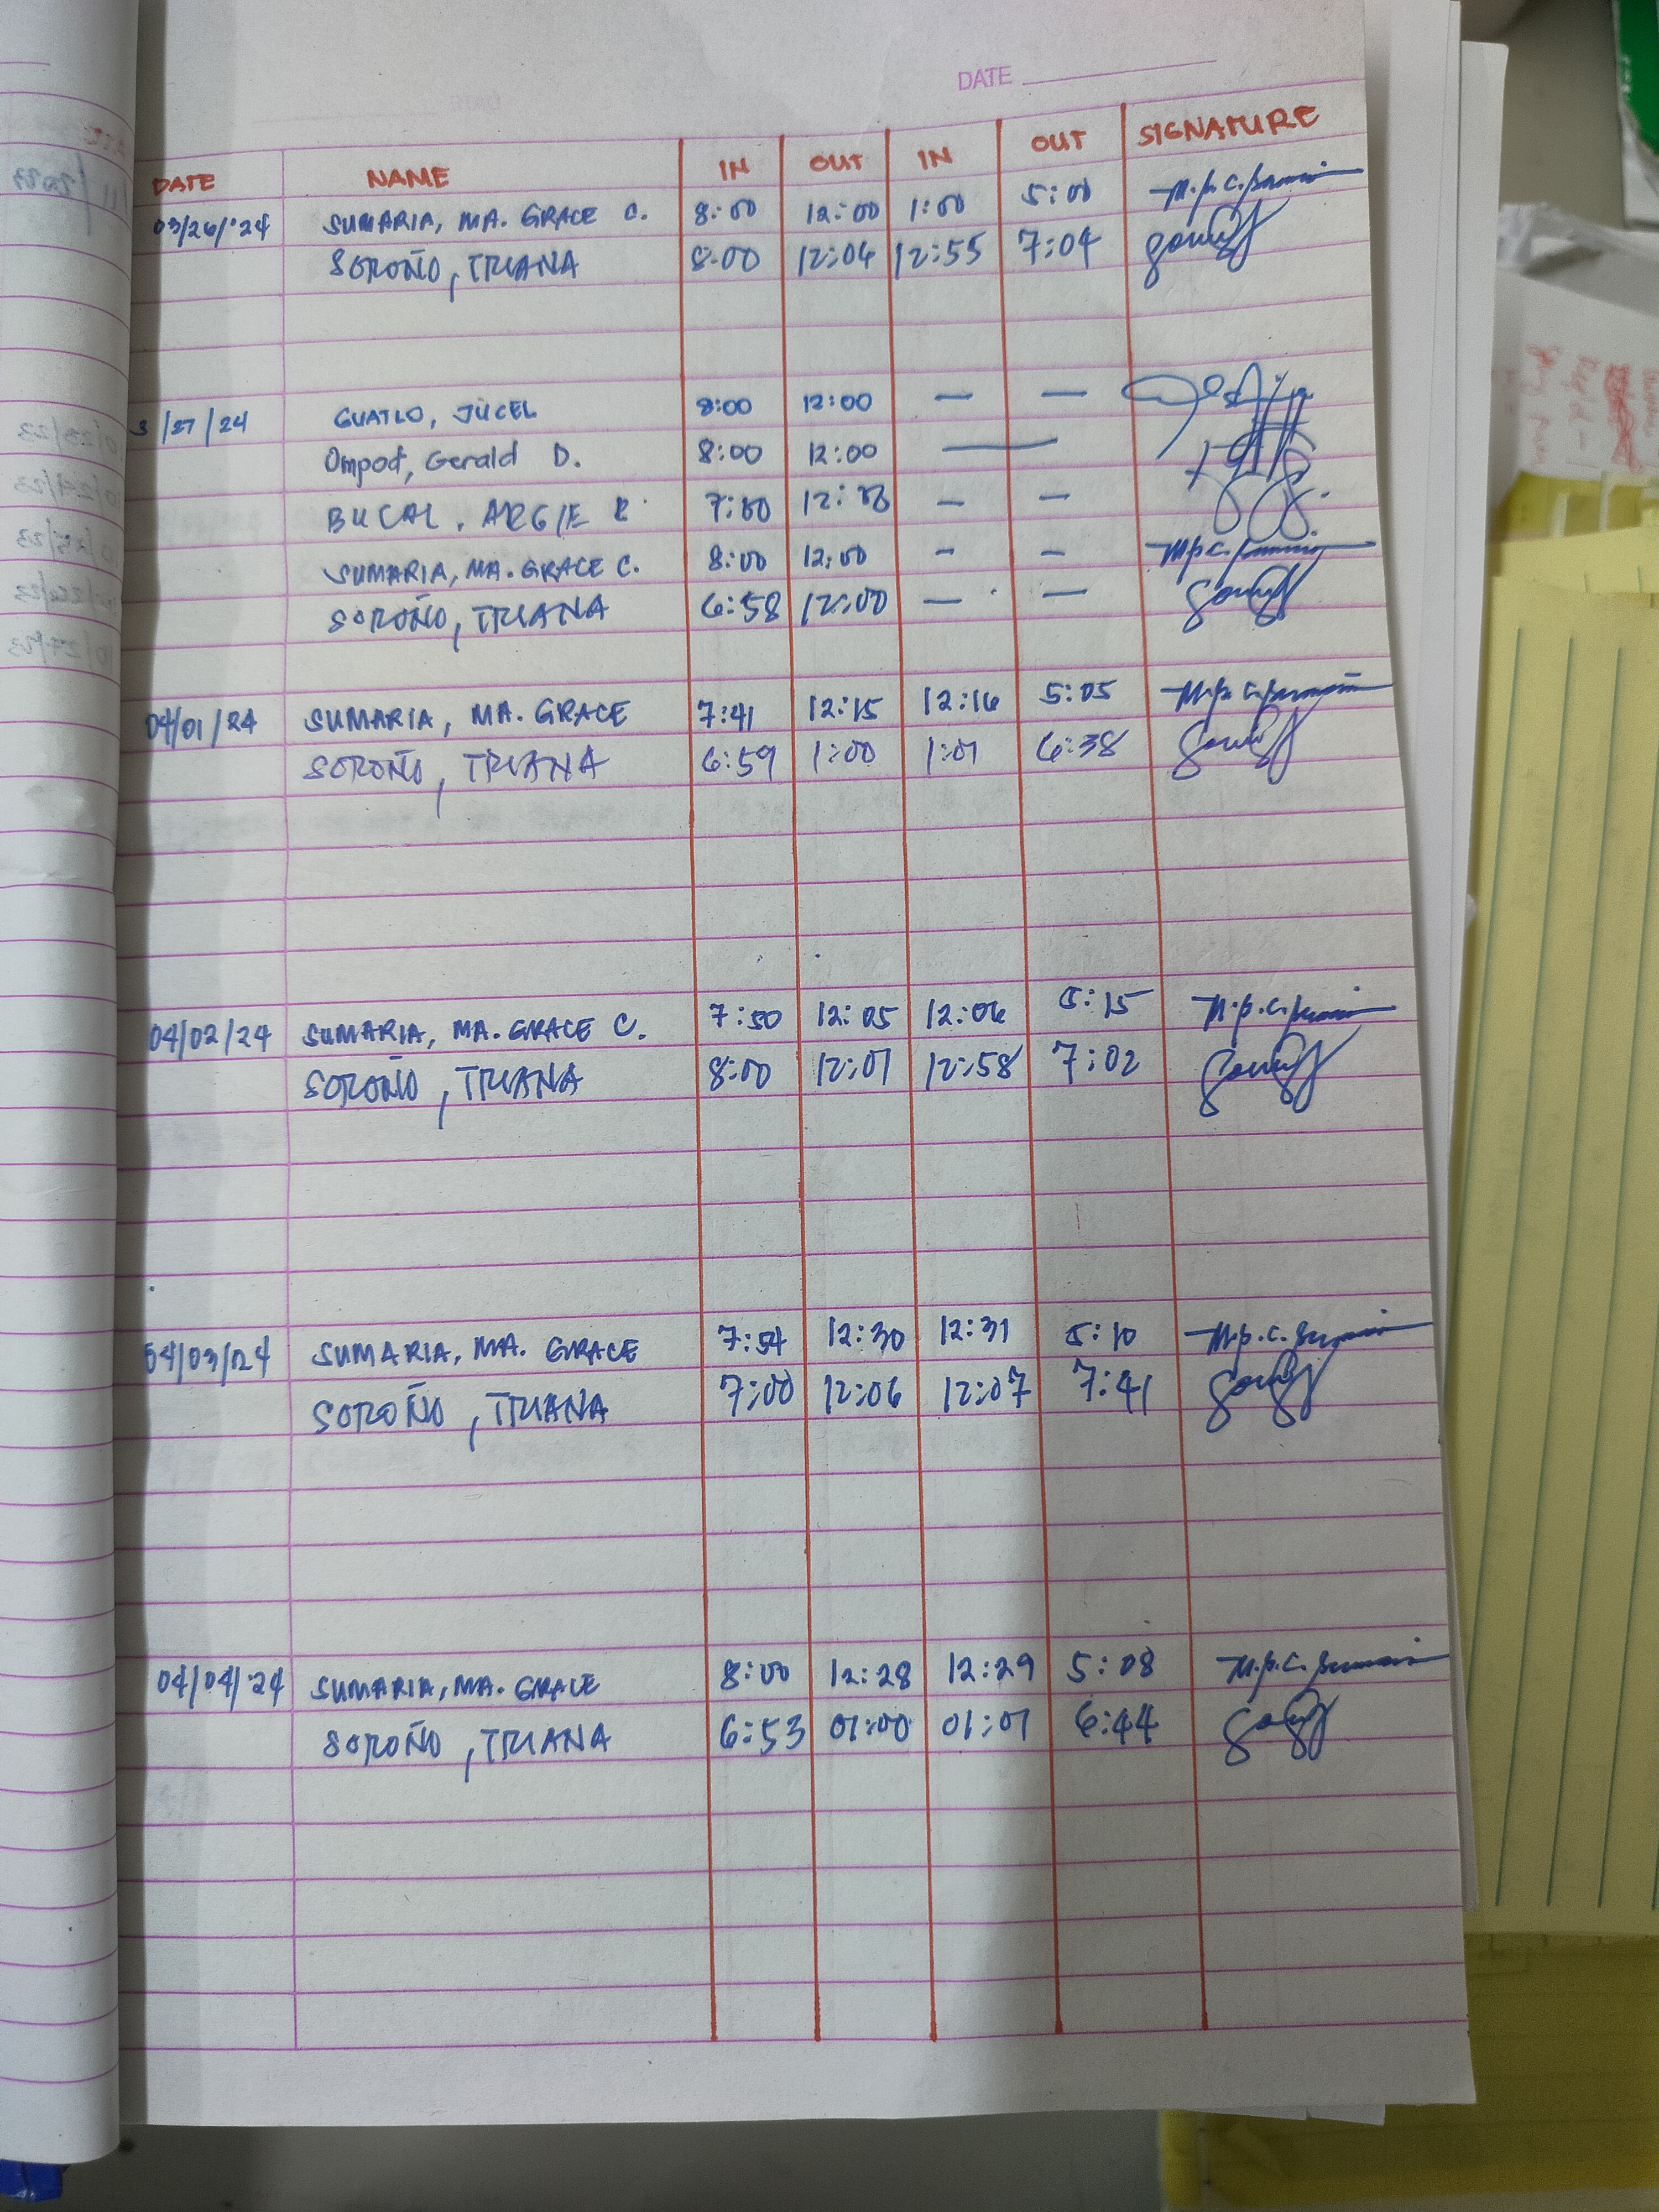 DATE
DATE NAME IN OUT IN OUT SIGNATURE
03/26/'24 SUMARIA, MA. GRACE C. 8:00 12:00 1:00 5:00
SOROÑO, TRIANA 8:00 12:04 12:55 7:04
3/27/24 GUATLO, JUCEL 8:00 12:00 — —
Ompod, Gerald D. 8:00 12:00 —
BUCAL, ARGIE R. 7:50 — —
SUMARIA, MA. GRACE C. 8:00 12:00 — —
SOROÑO, TRIANA 6:58 12:00 — —
04/01/24 SUMARIA, MA. GRACE 7:41 12:15 12:16 5:05
SOROÑO, TRIANA 6:59 1:00 1:01 6:38
04/02/24 SUMARIA, MA. GRACE C. 7:50 12:05 12:06 5:15
SOROÑO, TRIANA 8:00 12:01 12:58 7:02
04/03/24 SUMARIA, MA. GRACE 7:54 12:30 12:31 5:10
SOROÑO, TRIANA 7:00 12:06 12:07 7:41
04/04/24 SUMARIA, MA. GRACE 8:00 12:28 12:29 5:08
SOROÑO, TRIANA 6:53 01:00 01:01 6:44